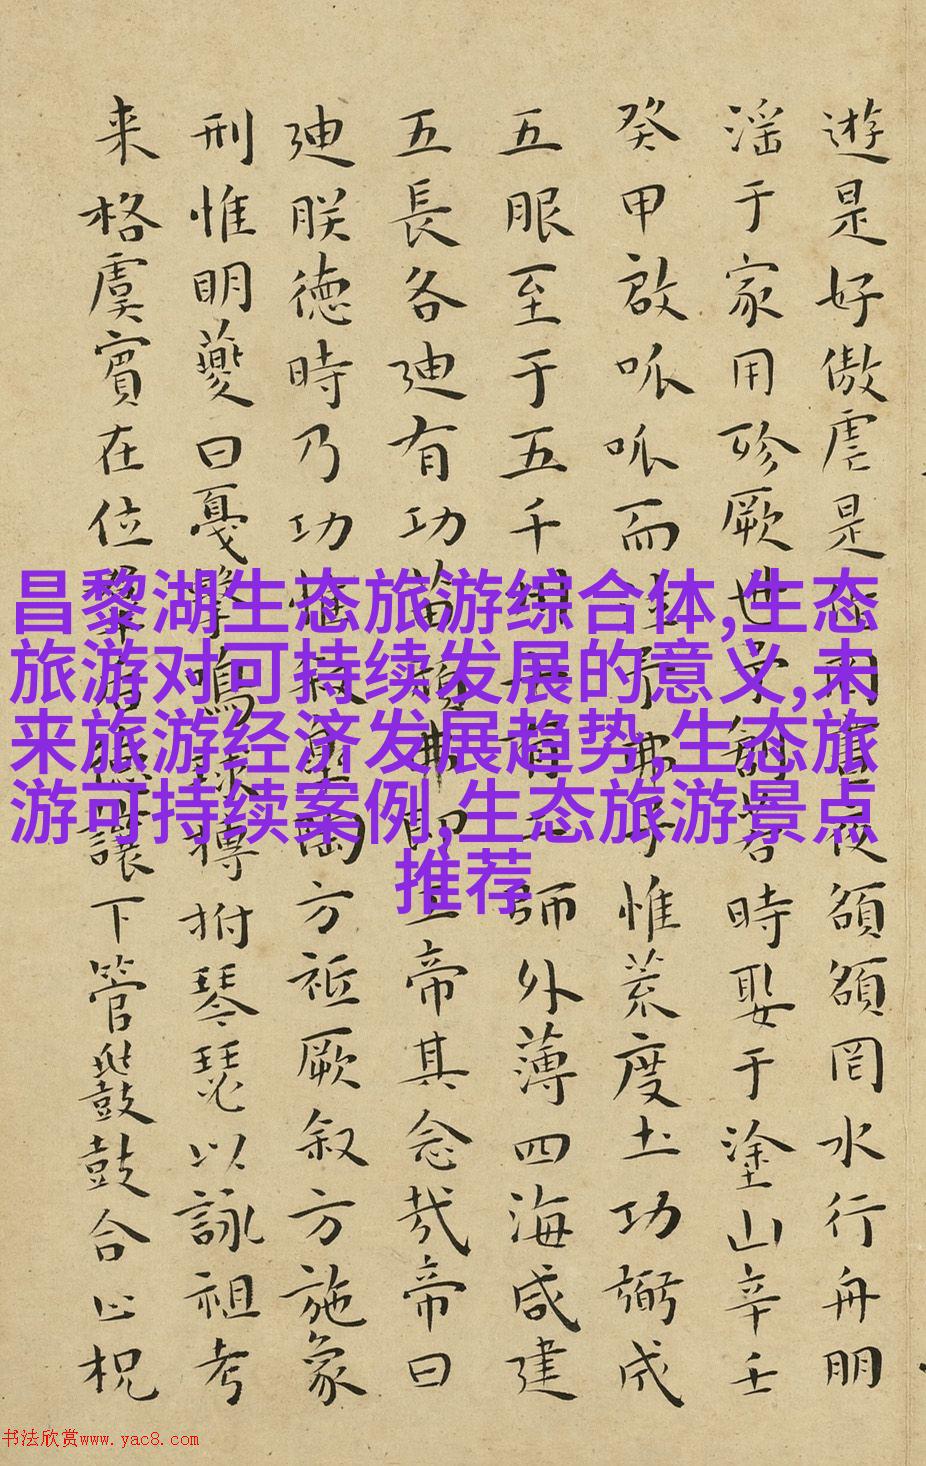 遊是好傲虐是夜頟頟罔水行舟朋
淫于家用殄厥世予創若時娶于塗山辛壬
癸甲啟呱呱而泣予弗子惟荒度土功弼成
五服至于五千有師外薄四海咸建
五長各迪有功苗頑弗即工帝其念哉帝曰
迪朕德時乃功惟叙方祗厥叙方施象
刑惟明夔曰戛擊鳴球搏拊琴瑟以詠祖考
来格虞賓在位德讓下管鼗鼓合止柷
昌黎湖生态旅游综合体,生态
旅游对可持续发展的意义,未
来旅游经济发展趋势,生态旅
游可持续案例,生态旅游景点
推荐
书法欣赏www.yac8.com